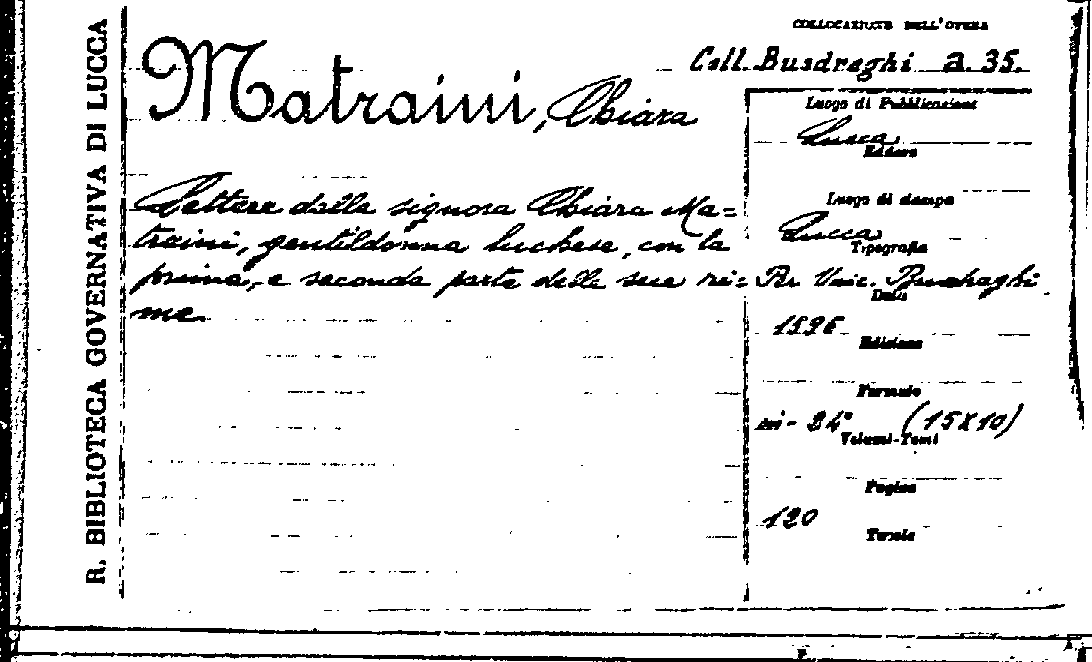 R. BIBLIOTECA GOVERNATIVA DI LUCCA
Matraini, Chiara
Lettere della signora Chiara Ma=
traini, gentildonna luchese, con la
prima, e seconda parte delle sue ri=
me.
COLLOCAZIONE DELL'OPERA
Coll. Busdraghi a. 35.
Luogo di Pubblicazione
Lucca
Editore
Luogo di stampa
Lucca
Tipografia
Vinc. Busdraghi
Data
Edizione
Formato
in-24° (15X10)
Volumi-Tomi
Pagine
120
Tavole